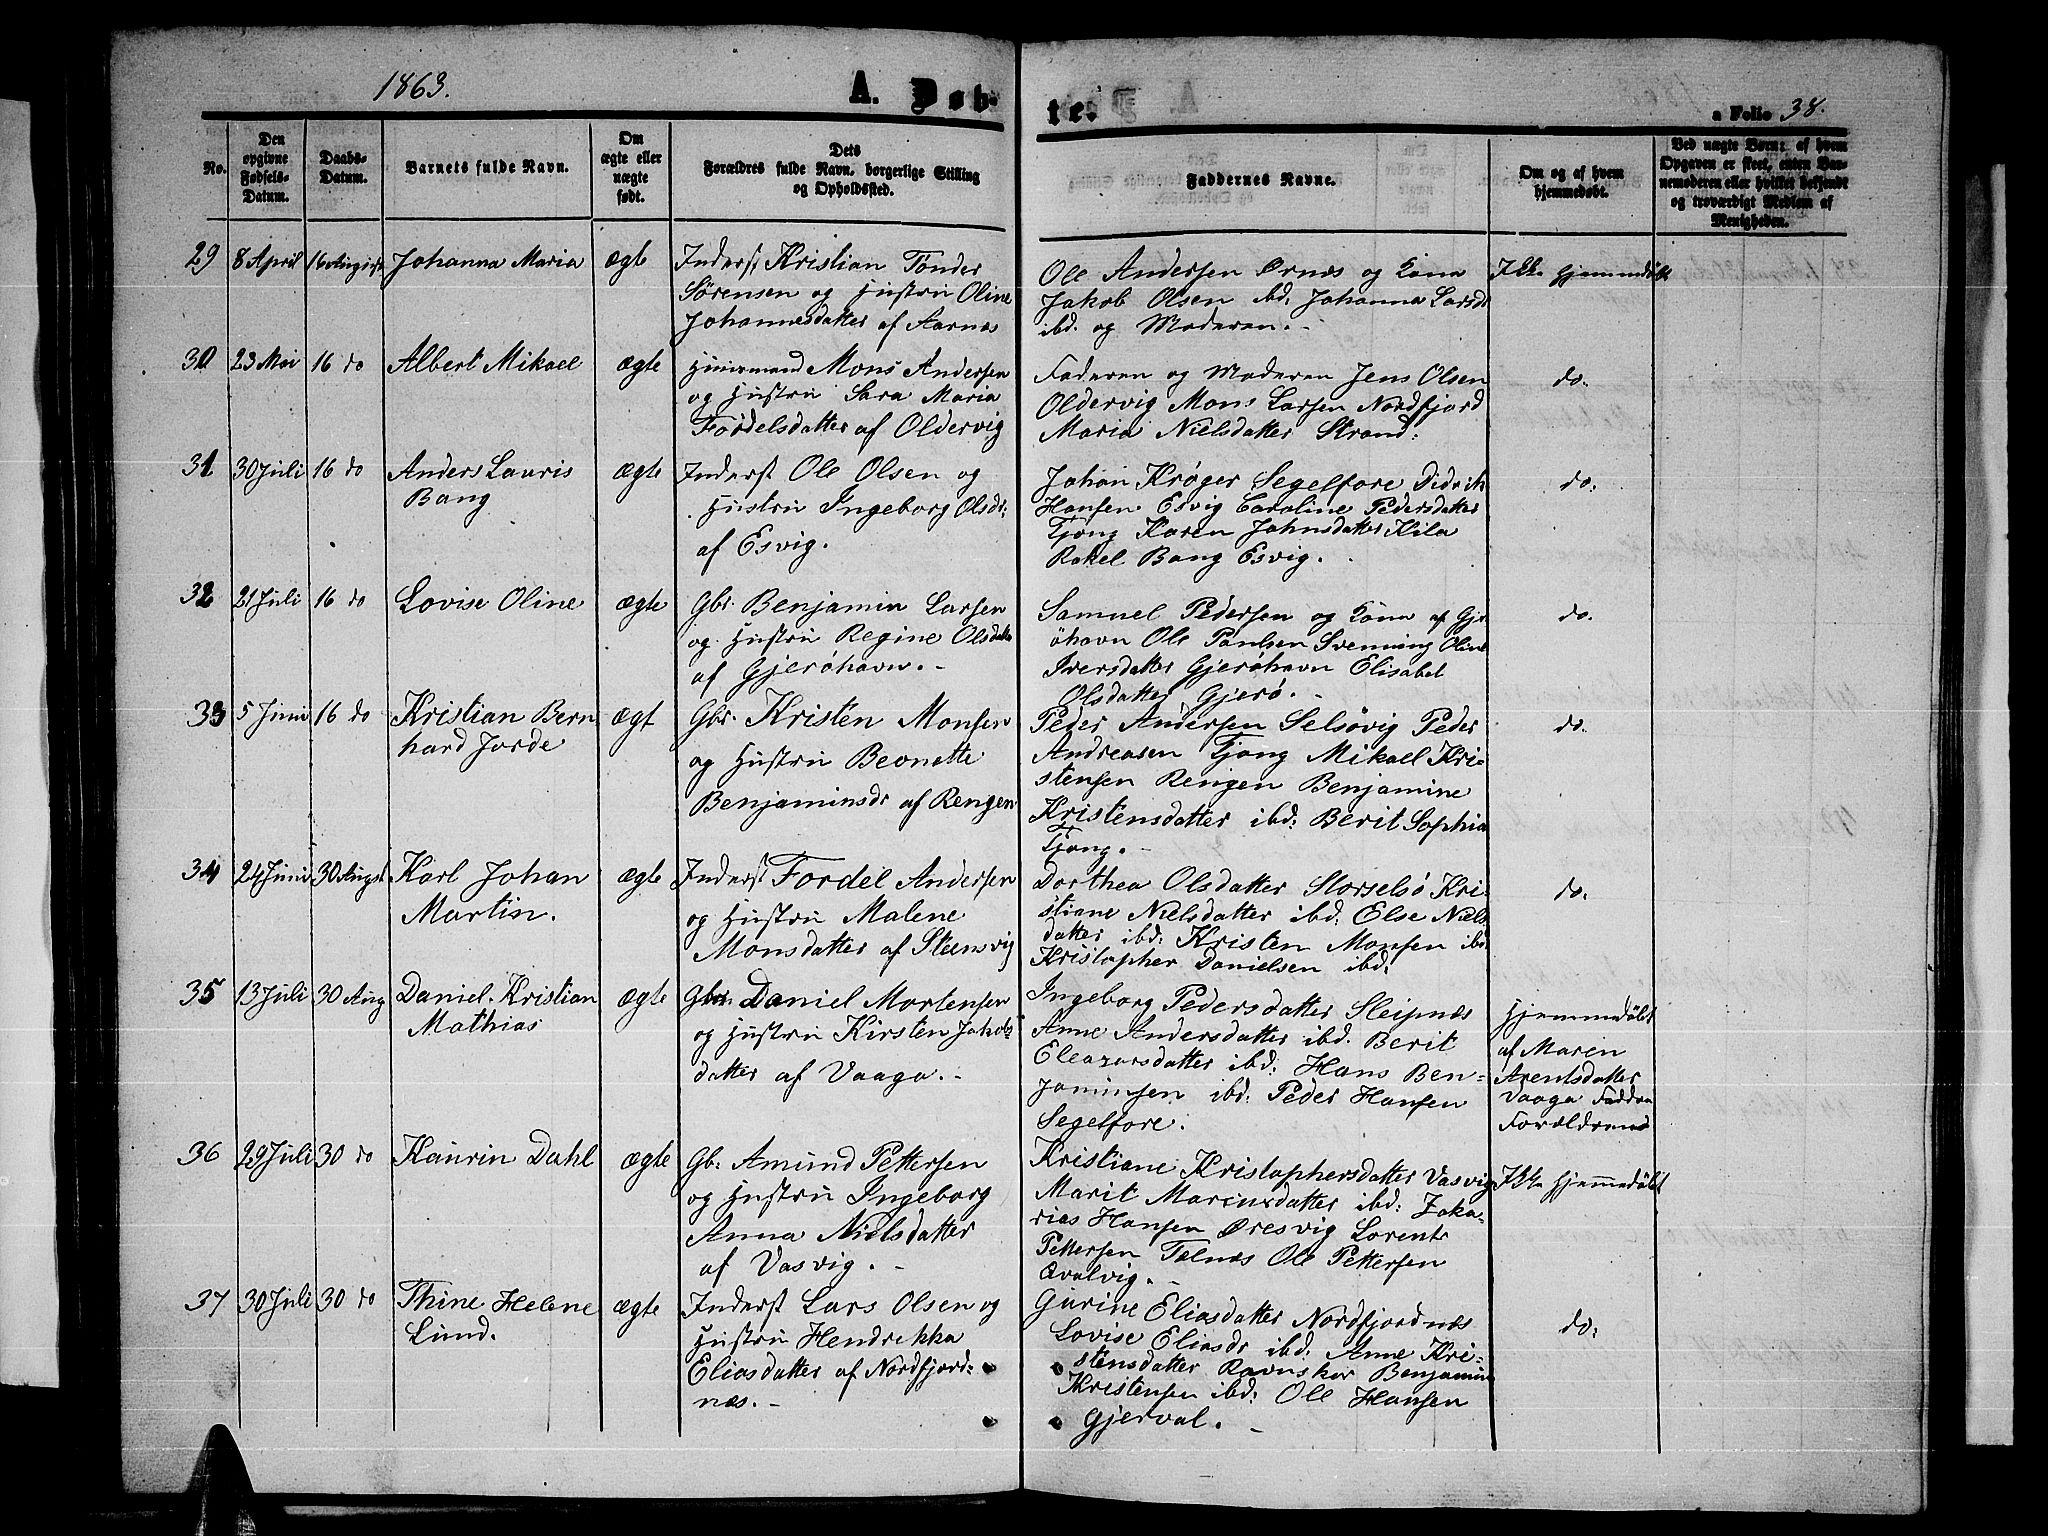 1863.
A. Døb-
te.
a Folio 38.
No.
Den opgivne Fødsels-Datum.
Daabs-Datum.
Barnets fulde Navn.
Om ægte eller uægte født.
Dets Forældres fulde Navn, borgerlige Stilling og Opholdssted.
Faddernes Navne.
Om og af hvem hjemmedøbt.
Ved uægte Børn: af hvem Opgaven er skeet, enten Barnemoderen eller hvilket bekjendt og troværdigt Medlem af Menigheden.
29 8 April 16 August Johanna Maria ægte Inderst Kristian Tønder
Sørensen og Hustru Oline
Johannesdatter af Aarnes
Ole Andersen Ørnæs og Kona
Jakob Olsen ibd: Johanna Larsdr
ibd. og Moderen.-
Ikke hjemmedøbt
30 23 Mai 16 do Albert Mikael ægte Huusmand Mons Andersen
og Hustru Sara Maria
Fördelsdatter af Oldervig
Faderen og Moderen Jens Olsen
Oldervig Mons Larsen Nordfjord
Maria Nielsdatter Strand:
do.
31 30 Juli 16 do Anders Lauris
Bang
ægte Inderst Ole Olsen og
Hustru Ingeborg Olsdr:
af Esvig.
Johan Krøger Segelfore Didrik
Hansen Esvig Caroline Pedersdatter
Tjong Karen Johnsdatter Kila
Rakel Bang Esvig.
do:
32 21 Juli 16 do Lovise Oline ægte Gbr. Benjamin Larsen
og Hustru Regine Olsdatter
af Gjeröhavn.-
Samuel Pedersen og Kona af Gjer
öhavn Ole Paulsen Svenning Oline
Iversdatter Gjeröhavn Elisabet
Olsdatter Gjerö.-
do.
33 5 Juni 16 do Kristian Bern
hard Jorde
ægt Gbr. Kristen Monsen
og Hustru Beonette
Benjaminsdr af Rengen
Peder Andersen Selsövig Peder
Andreasen Tjong Mikael Kri-
stensen Rengen Benjamine
Kristensdatter ibd: Berit Sophia
Tjong.-
do.
34 24 Juni 30 Augst Karl Johan
Martin.
ægte Inderst Fordel Andersen
og Hustru Malene
Monsdatter af Steensvig
Dorthea Olsdatter Storselsö Kri-
stiane Nielsdatter ibd: Else Niels
datter ibd: Kristen Monsen ibd
Kristopher Danielsen ibd:
do.
35 13 Juli 30 Aug Daniel Kristian
Mathias
ægte Gbr. Daniel Mortensen
og Hustru Kirsten Jakobs
datter af Vaaga.-
Ingeborg Pedersdatter Sleipnæs
Anne Andersdatter ibd. Berit
Eleazarsdatter ibd: Hans Ben-
jaminsen ibd: Peder Hansen
Segelfore.
Hjemmedöbt
af Maren
Arentsdatter
Vaaga Faddre
Forældrene
36 29 Juli 30 do Kaurin Dahl ægte Gb: Amund Pettersen
og Hustru Ingeborg
Anna Nielsdatter
af Vasvig.-
Kristiane Kristophersdatter Vasvig
Marit Mariusdatter ibd: Zaka-
rias Hansen Öresvig Lorents
Pettersen Telnæs Ole Pettersen
Qvalvig.-
Ikke hjemmedöbt
37 30 Juli 30 do Thine Helene
Lund.
ægte Inderst Lars Olsen og
Hustru Hendrekka
Eliasdatter af Nordfjord-
næs.-
Gurine Eliasdatter Nordfjordnæs
Lovise Eliasdr ibd: Anne Kri-
stensdatter Ravnskor Benjamin
Kristensen ibd: Ole Hansen
Gjerval.
do: